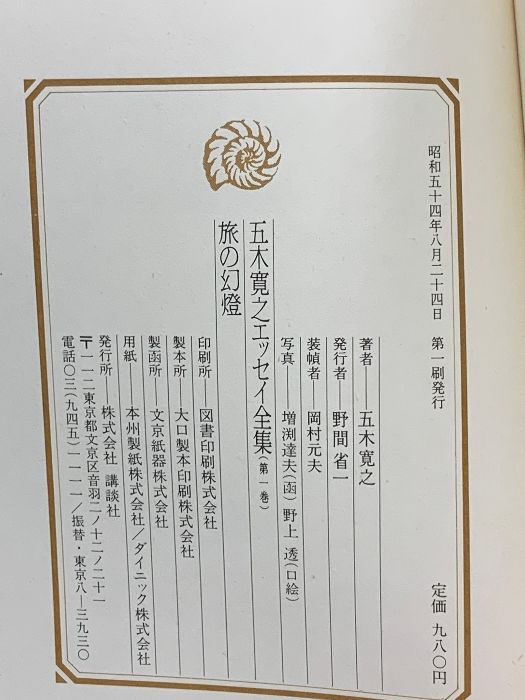 昭和五十四年八月二十四日 第一刷発行
定価 九八〇円
著者――五木寛之
発行者――野間省一
装幀者――岡村元夫
写真――増渕達夫(函) 野上 透(口絵)
五木寛之エッセイ全集(第一巻)
旅の幻燈
印刷所――図書印刷株式会社
製本所――大口製本印刷株式会社
製函所――文京紙器株式会社
用紙――本州製紙株式会社/ダイニック株式会社
発行所――株式会社 講談社
〒一一二東京都文京区音羽二ノ十二ノ二十一
電話〇三(九四五)一一一一/振替・東京八―三九三〇